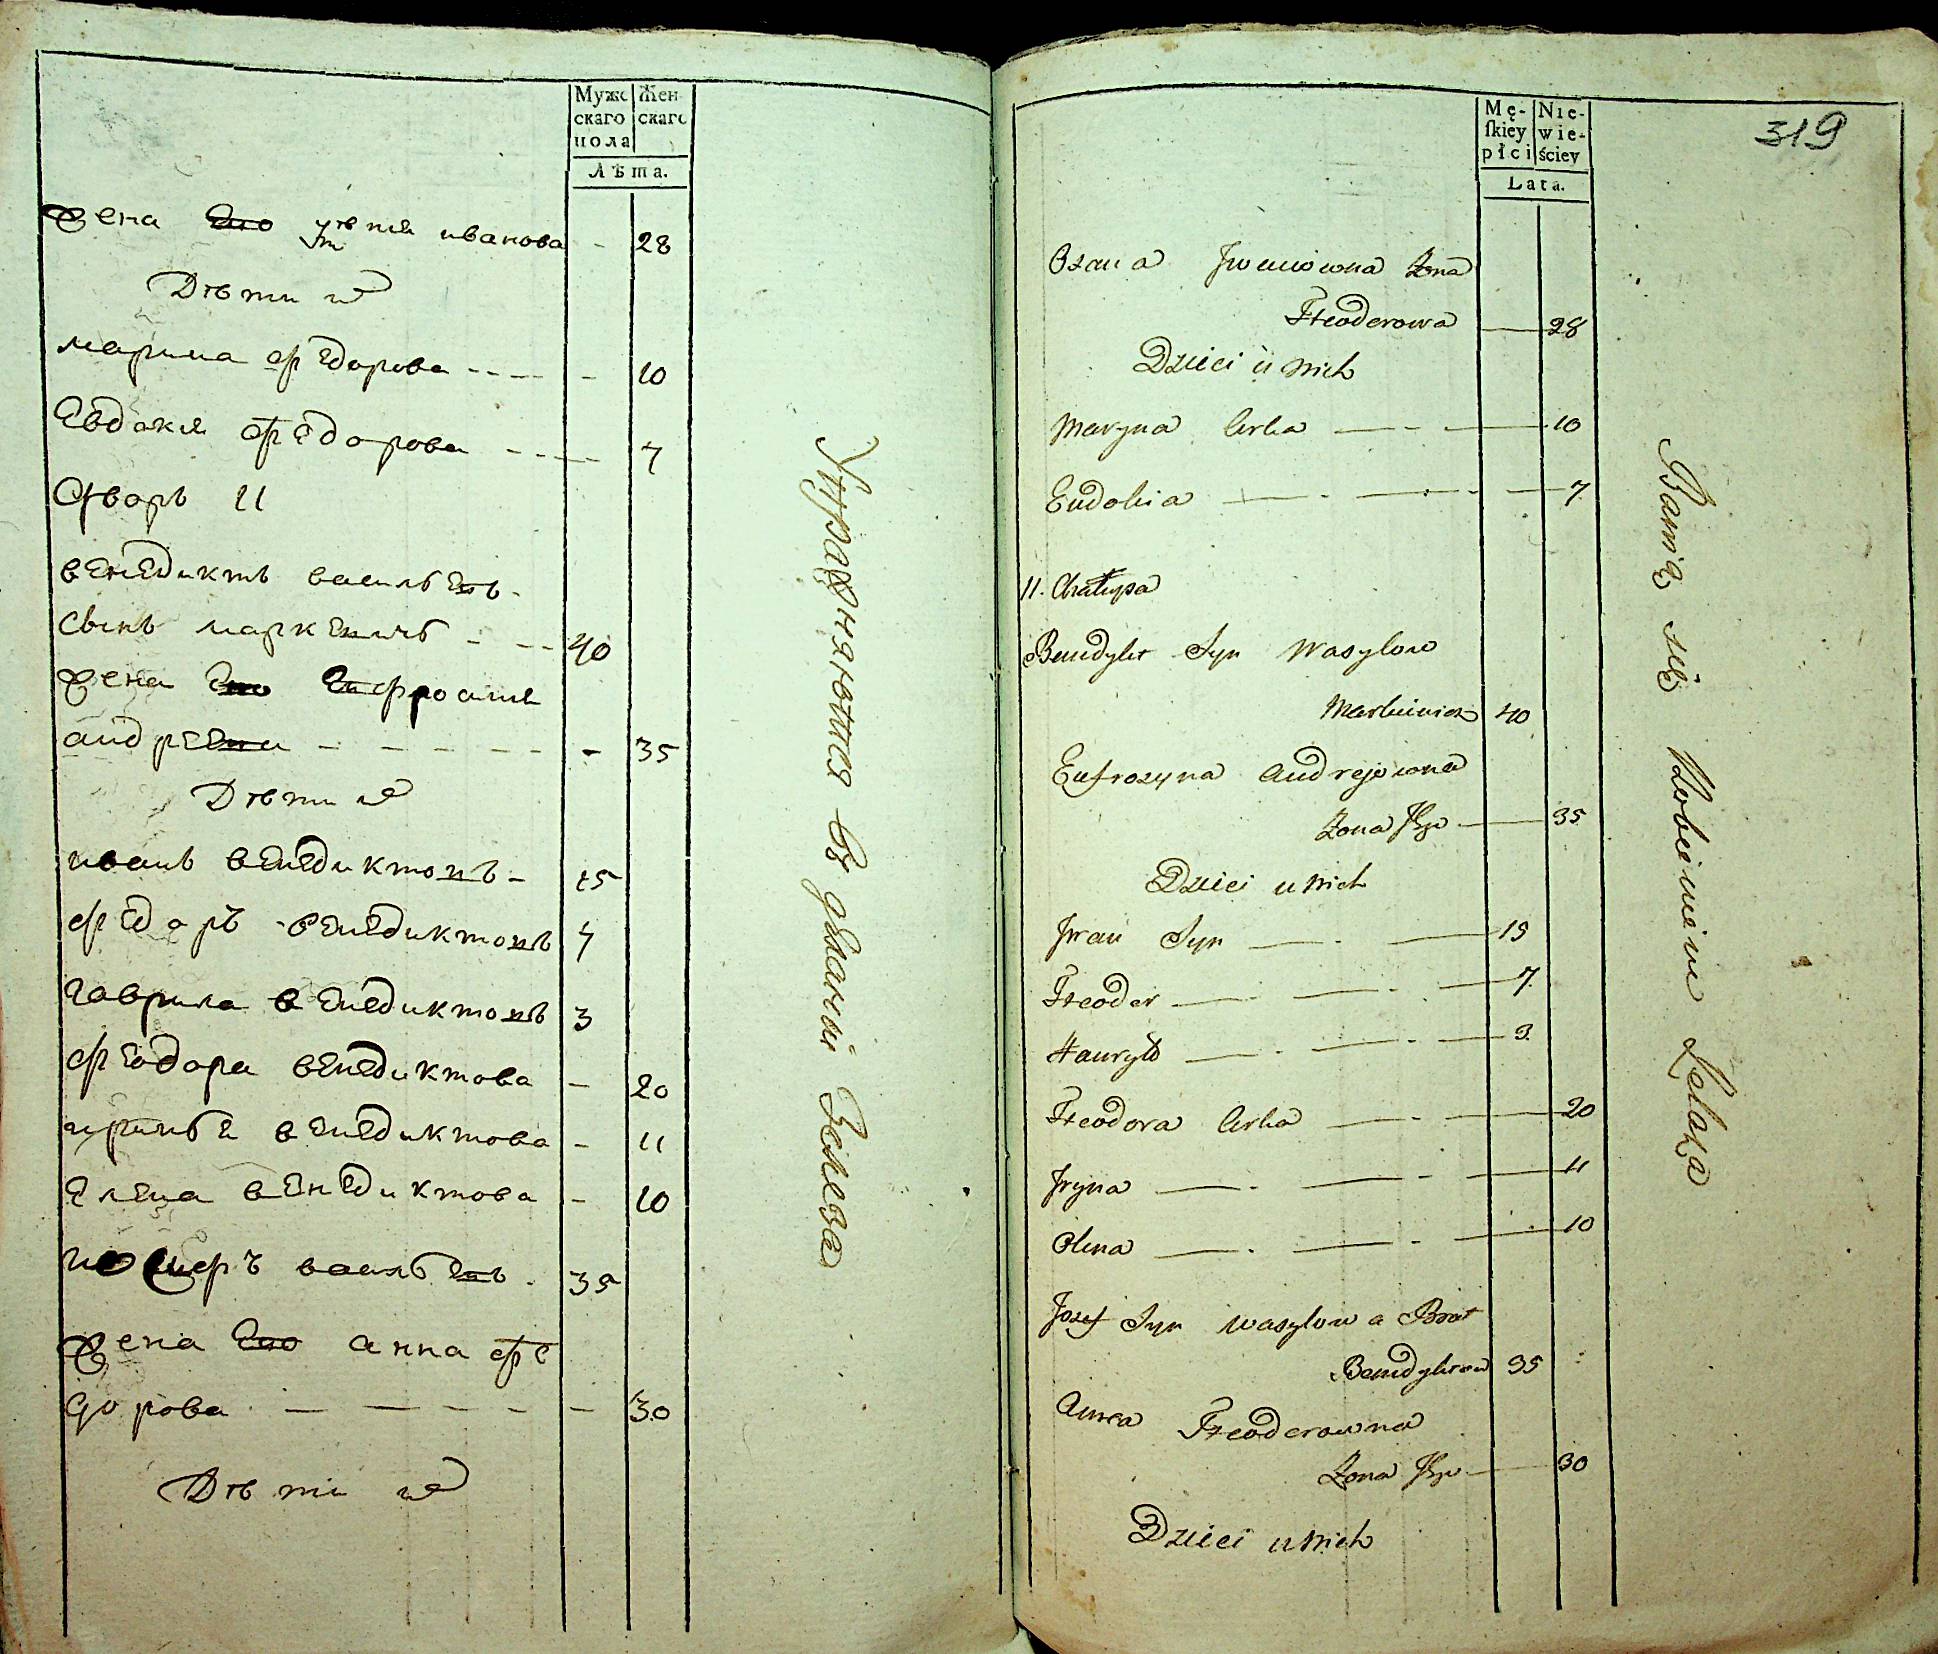 Мужс
скаго
пола
Жен
скаго
Лѣта.
жена Его устѣнiя иванова - 28
Дѣти их
марина федорова - - - - - 10
Евдокия федорова - - - - 7
Дворъ 11
венедиктъ васильевъ
сынъ маркевичь - - - 40
жена Его Ефросиния
андреева - - - - - - 35
Дѣти их
иванъ венедиктовъ - 15
федоръ венедиктовъ 7
гаврила венедиктовъ 3
феодора венедиктова - 20
ирина венедиктова - 11
Елена венедиктова - 10
иосифъ васильевъ - 35
жена Его анна фе
дорова - - - - - - 30
Дѣти их
Упражняются въ дѣланiи Железа
Mę-
skiey
płci
Nie-
wie-
ściey
Lata.
319
Iwanowna Żona
Fteoderowa 28
Dzieci u nich
Maryna Corka 10
Eudokia 7
11. Chałupa
Benedykt Syn Wasylow
Markiewicz 40
Eufrozyna Andrejowna
Żona Jego 35
Dzieci u nich
Jwan Syn 15
Fteoder 7
Hauryło 3
Fteodora Corka 20
Jryna 11
Olena 10
Jozef Syn Wasylow a Brat
Benedyktow 35
Anna Fteoderowna
Żona Jego 30
Dzieci u nich
Bawią się Robieniem Żelaza